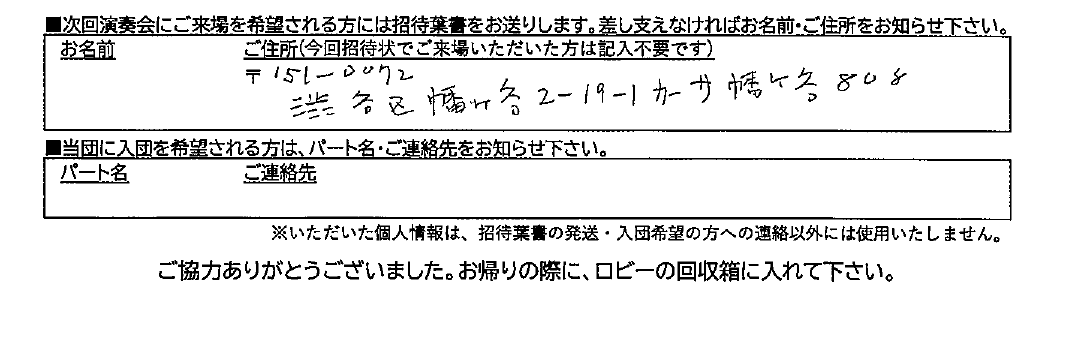 ■次回演奏会にご来場を希望される方には招待葉書をお送りします。差し支えなければお名前・ご住所をお知らせ下さい。
お名前 ご住所(今回招待状でご来場いただいた方は記入不要です)
〒151-0072
渋谷区幡ヶ谷2-19-1カーサ幡ヶ谷808
■当団に入団を希望される方は、パート名・ご連絡先をお知らせ下さい。
パート名 ご連絡先
※いただいた個人情報は、招待葉書の発送・入団希望の方への連絡以外には使用いたしません。
ご協力ありがとうございました。お帰りの際に、ロビーの回収箱に入れて下さい。